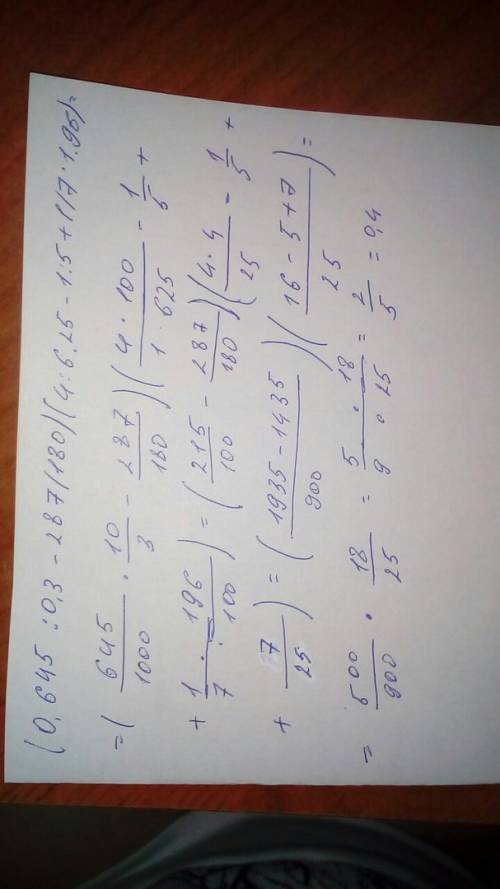 (0,645 : 0,3 - 287/180)(4:6.25 - 1:5 + 1/7 · 1.96)=
=( 645/1000 · 10/3 - 287/180 )( 4 · 100/1 · 625 - 1/5 +
+ 1/7 · 196/100 ) = ( 215/100 - 287/180 )( 4·4/25 - 1/5 +
+ 7/25 ) = ( 1935 - 1435/900 )( 16 - 5 + 7/25 ) =
= 500/900 · 18/25 = 5/9 · 18/25 = 2/5 = 0,4